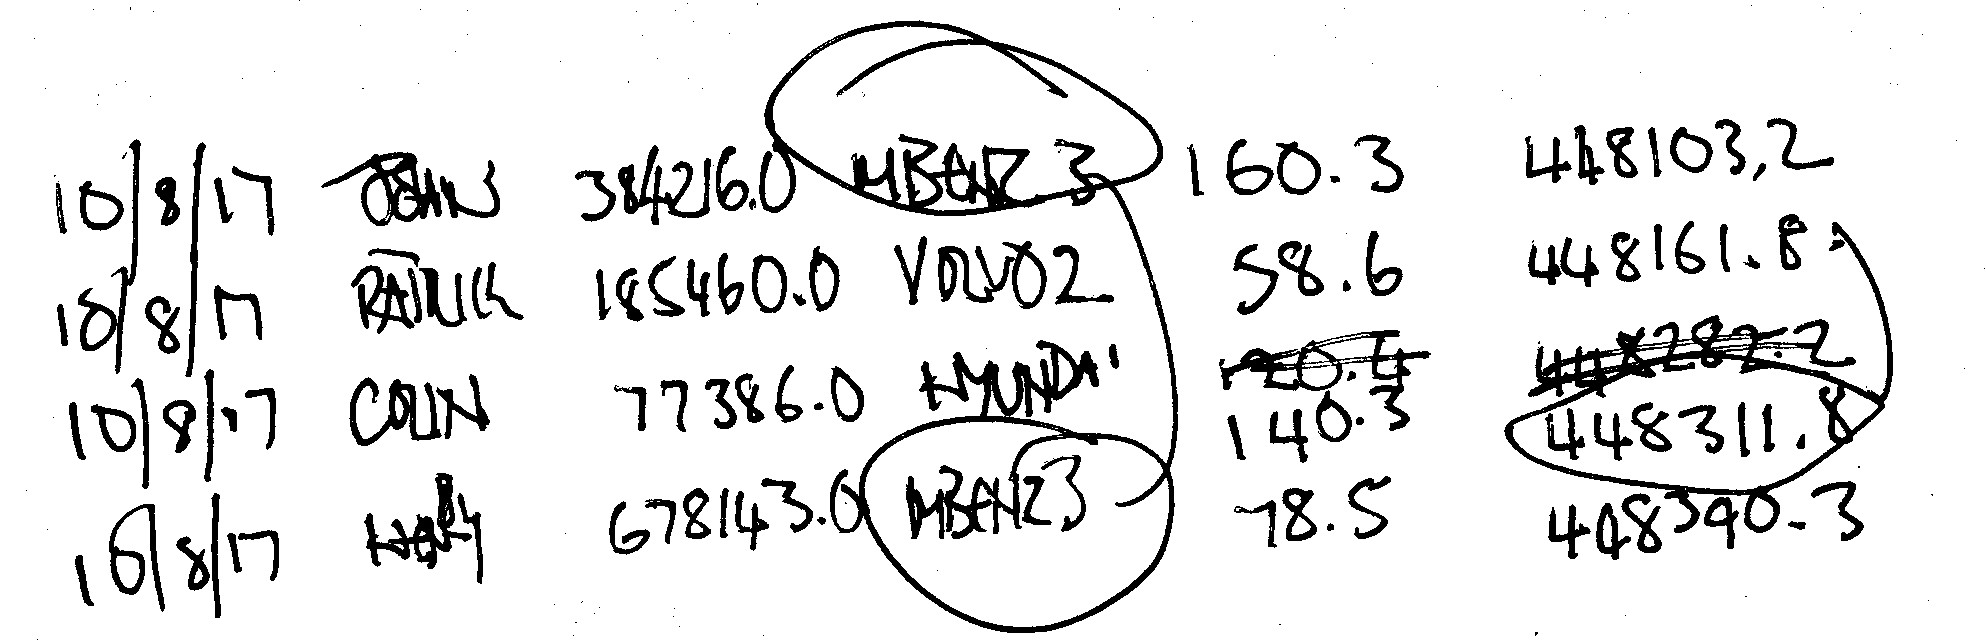 10/8/17 JOHN 384216.0 MBENZ 3 160.3 448103,2
10/8/17 PATRICK 185460.0 VOLVO 2 58.6 448161.8
10/8/17 COLIN 77386.0 HYUNDAI 120.4 448282.2
140.3 448311.8
10/8/17 HENRY 678143.0 MBENZ 3 78.5 448390.3